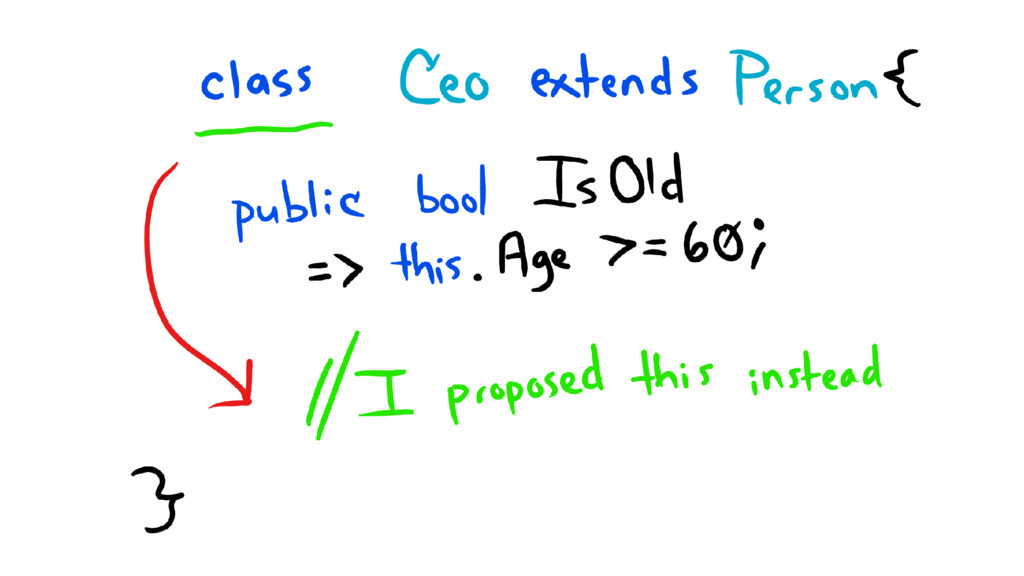 class Ceo extends Person{
public bool IsOld
=> this.Age >=60;
//I proposed this instead
}